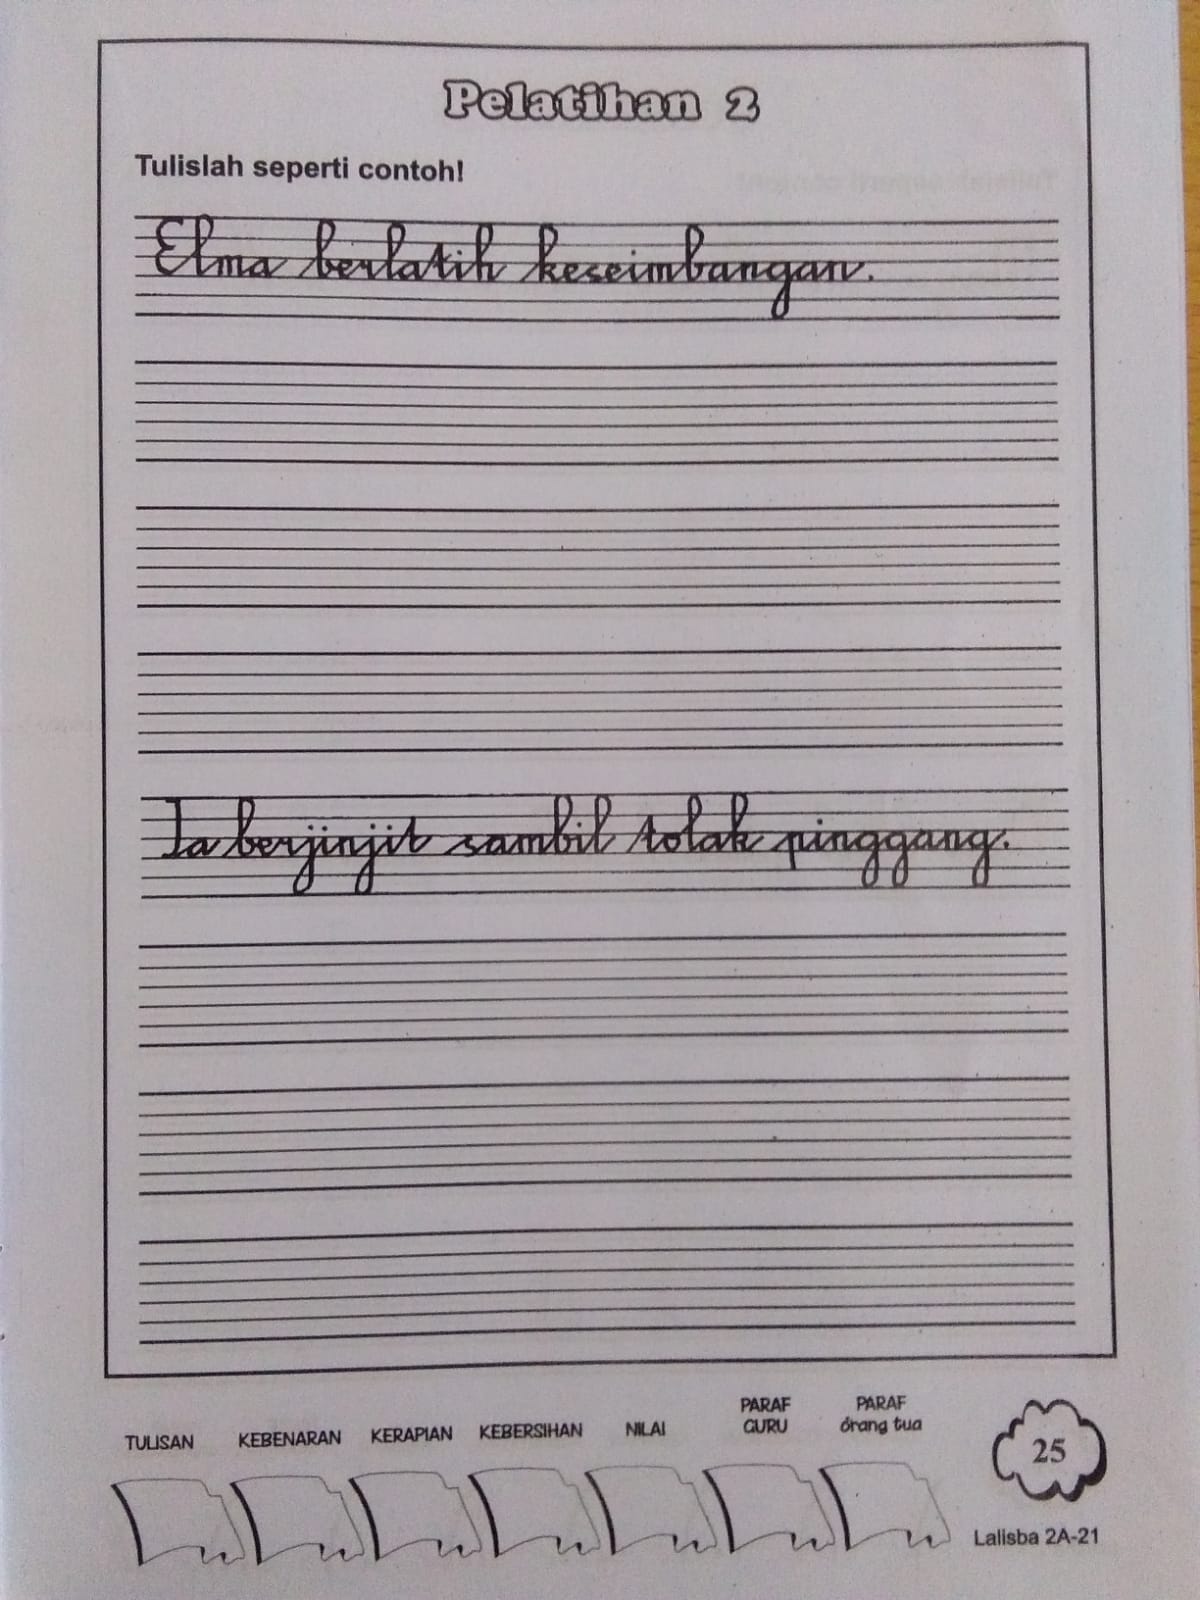 Pelatihan 2
Tulislah seperti contoh!
Elma berlatih keseimbangan.
Ia berjinjit sambil tolak pinggang.
TULISAN KEBENARAN KERAPIAN KEBERSIHAN NILAI PARAF GURU PARAF orang tua
25
Lalisba 2A-21